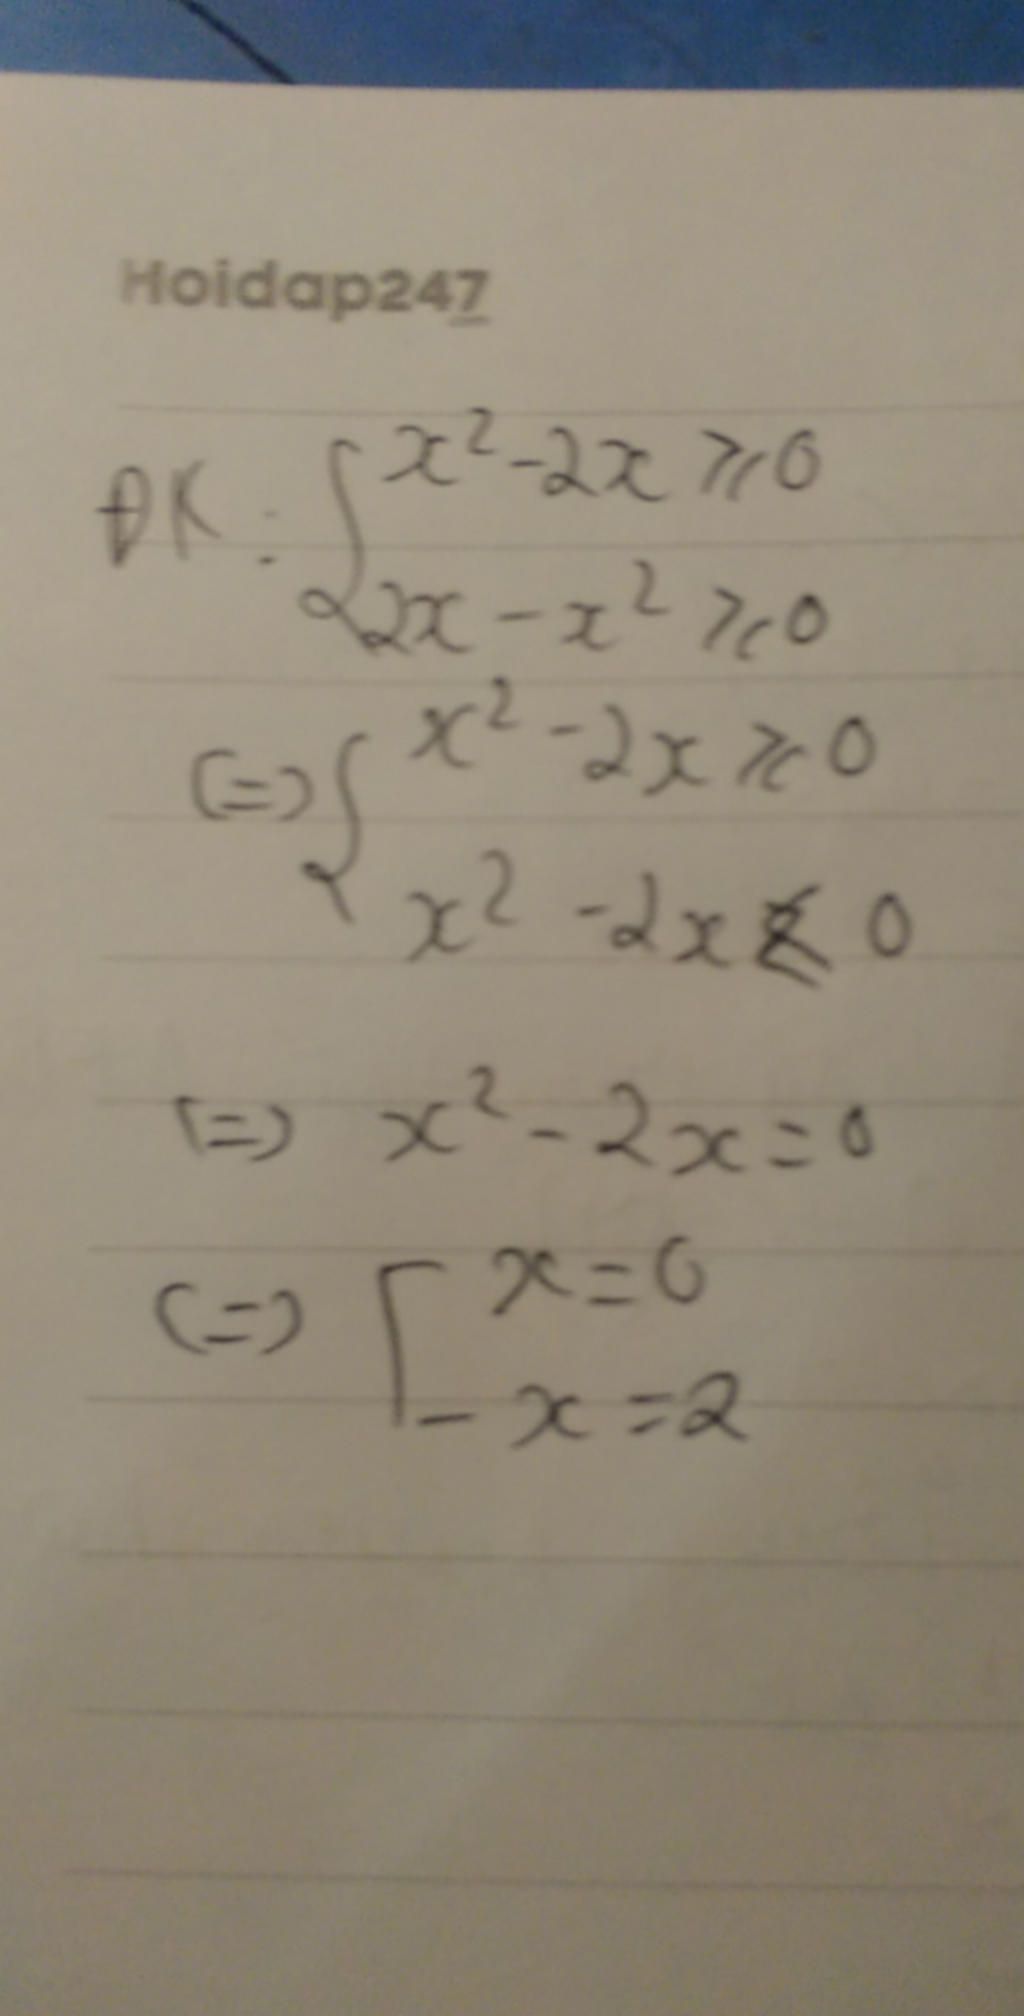 Hoidap247
ĐK: { x² - 2x ⩾ 0
2x - x² ⩾ 0
(=) { x² - 2x ⩾ 0
x² - 2x ⩽ 0
(=) x² - 2x = 0
(=) [ x = 0
x = 2